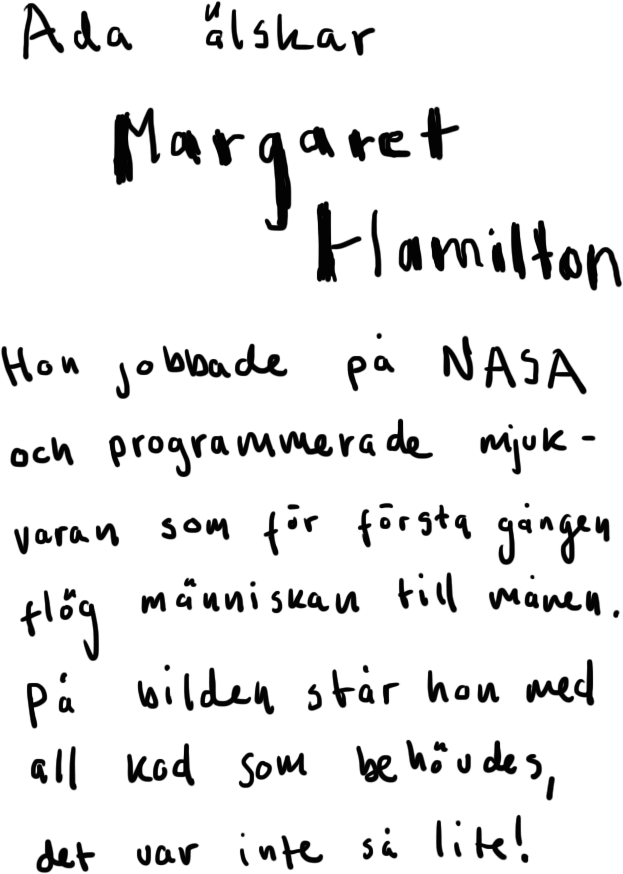 Ada älskar
Margaret
Hamilton
Hon jobbade på NASA
och programmerade mjuk-
varan som för första gången
flög människan till månen.
På bilden står hon med
all kod som behövdes,
det var inte så lite!